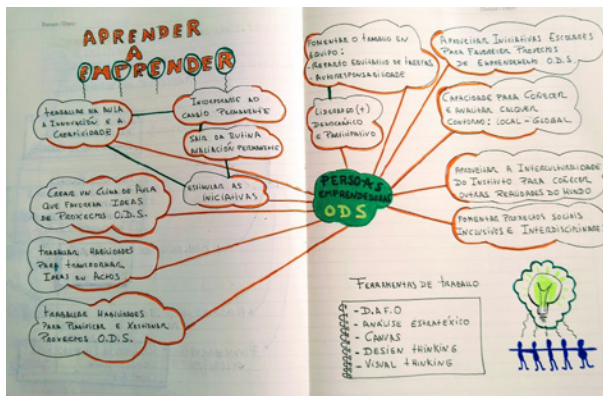 APRENDER
A
EMPRENDER
TRABALLAR NA AULA
A INNOVACIÓN E A
CREATIVIDADE
INCORPORARSE AO
CAMBIO PERMANENTE
SAIR DA RUTINA
AVALIACIÓN PERMANENTE
ESTIMULAR AS
INICIATIVAS
CREAR UN CLIMA DE AULA
QUE FAVOREZA IDEAS
DE PROXECTOS O.D.S.
TRABALLAR HABILIDADES
PARA TRANSFORMAR
IDEAS EN ACTOS
TRABALLAR HABILIDADES
PARA PLANIFICAR E XESTIONAR
PROXECTOS O.D.S.
FOMENTAR O TRABALLO EN
EQUIPO:
- REPARTO EQUITATIVO DE TAREFAS
- AUTORESPONSABILIDADE
LIDERADGO (+)
DEMOCRÁTICO
E PARTICIPATIVO
PERSOAS
EMPRENDEDORAS
ODS
APROVEITAR INICIATIVAS ESCOLARES
PARA FAVORECER PROXECTOS
DE EMPRENDEMENTO O.D.S.
CAPACIDADE PARA COÑECER
E ANALIZAR CALQUER
CONTORNO: LOCAL - GLOBAL
APROVEITAR A INTERCULTURALIDADE
DO INSTITUTO PARA COÑECER
OUTRAS REALIDADES DO MUNDO
FOMENTAR PROXECTOS SOCIAIS
INCLUSIVOS E INTERDISCIPLINARES
FERRAMENTAS DE TRABALLO
- D.A.F.O
- ANÁLISE ESTRATÉXICO
- CANVAS
- DESIGN THINKING
- VISUAL THINKING